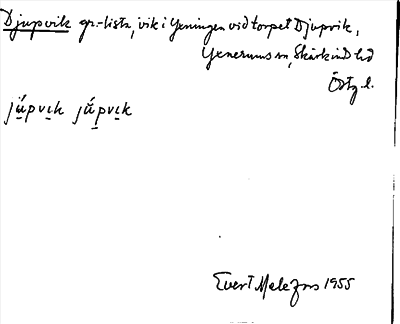 Djupvik gr.-lista, vik i Yxningen vid torpet Djupvik,
Yxnerums sn, Skärkinds hd
Östg. l.
júpvık júpvık
Evert Melefors 1955